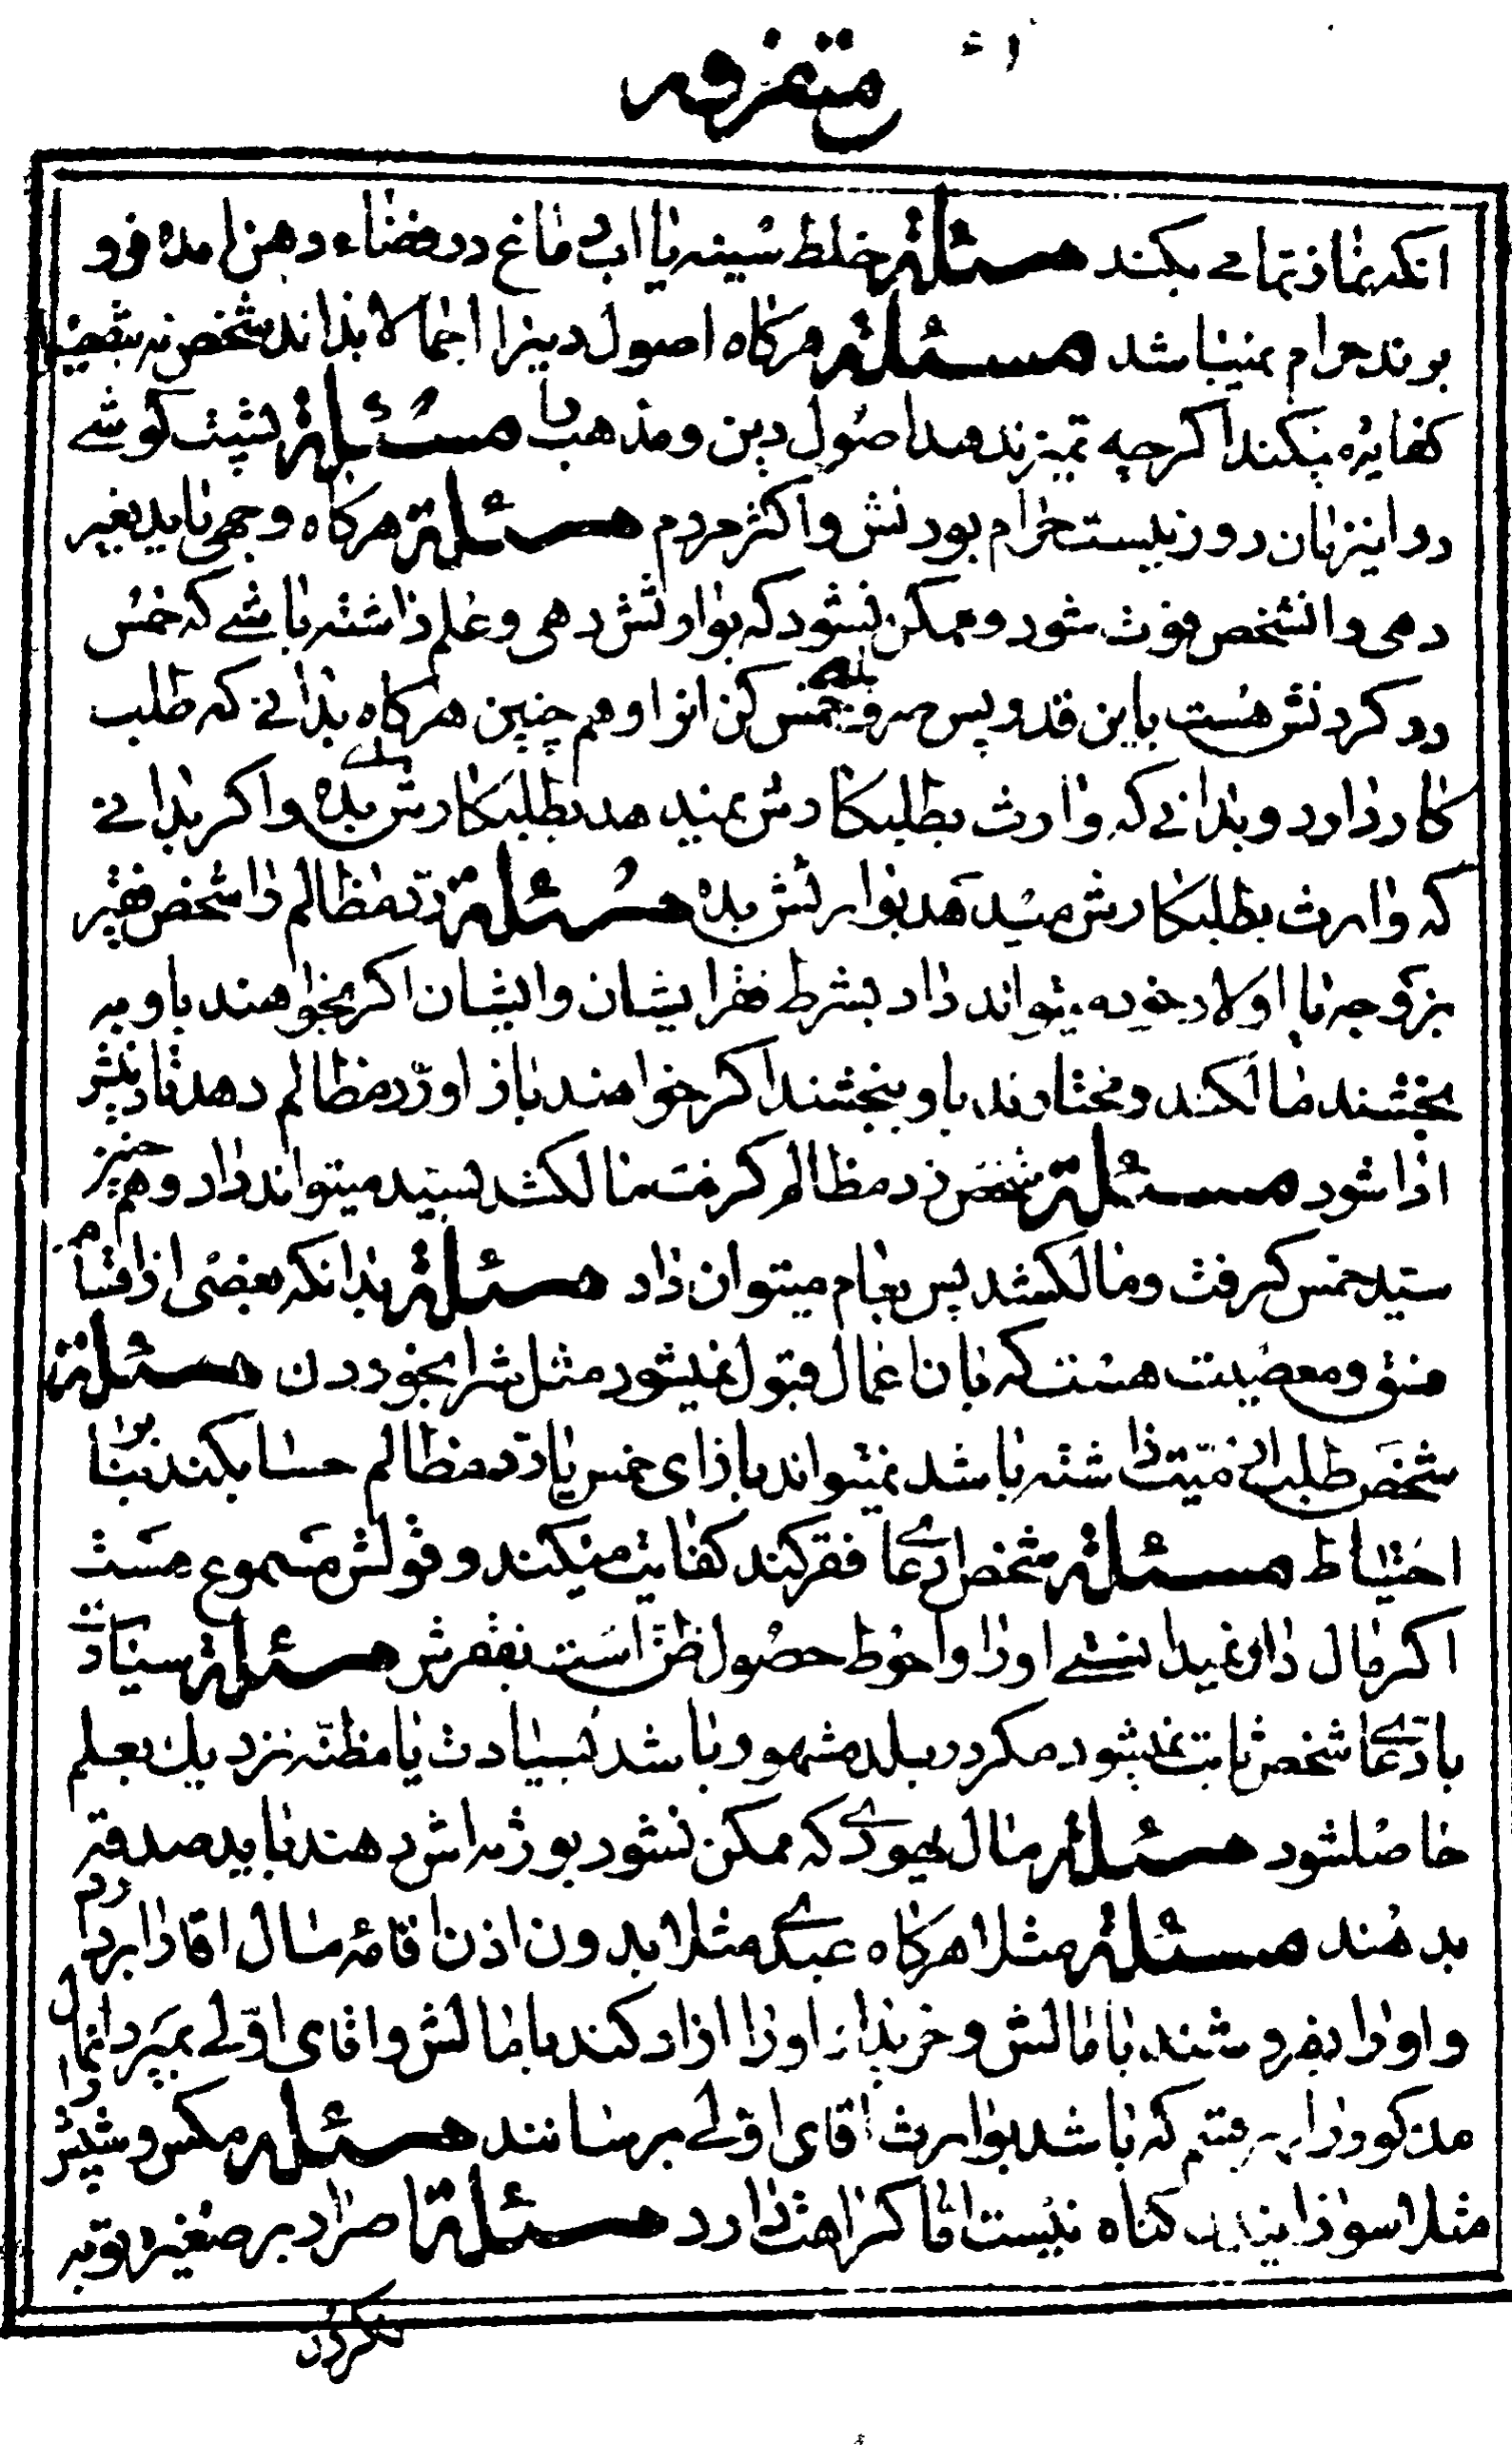 متفرقه
انکه نماز تمامی بکند مسئلة خلط سینه یا اب دماغ در فضاء دهن امده فرو
برند حرام نمیباشد مسئلة هرکاه اصول دینرا اجمالا بداند شخص نه بتفصیل
کفایة میکند اکرچه تمیز ندهد اصول دین و مذهب را مسئلة پشت کوشی
در اینزمان دور نیست حرام بودنش و اکثر مردم مسئلة هرکاه وجهی باید بغیر
دهی و انشخص فوت شود و ممکن نشود که بوارثش دهی و علم داشته باشی که خمس
رد کردنش هست باین قدر پس خمس کن انرا و هم چنین هرکاه بدانی که طلب
کار دارد و بدانی که وارث بطلبکارش نمیدهد بطلبکارش بده و اکر بدانی
که وارث بطلبکارش میدهد بوارثش بده مسئلة رد مظالم را شخص فقیر
بزوجه یا اولاد خود میتواند داد بشرط فقر ایشان و ایشان اکر بخواهند باو به
بخشند مالکند و مختارند باو ببخشند اکر خواهند باز او رد مظالم دهد تا دینش
ادا شود مسئلة شخص رد مظالم کرفت مالکشد بسید میتواند داد و هم چنین
سید خمس کرفت و مالکشد پس بعام میتوان داد مسئلة بدانکه بعضی از اقسام
فسق و معصیت هست که بان اعمال قبول نمیشود مثل شرابخوردن مسئلة
شخص طلب از میت داشته باشد نمیتواند بازای خمس یا رد مظالم حساب کند بنا بر
احتیاط مسئلة شخص ادعای فقر کند کفایت میکند و قولش مسموع هست
اکر مال دار نمیدانستی او را و احوط حصول ظن است بفقرش مسئلة سیادت
بادعای شخص ثابت نمیشود مکر در بلد مشهور باشد بسیادت یا مظنه نزدیک بعلم
حاصلشود مسئلة مال یهودی که ممکن نشود بورثه اش دهند باید صدقه
بدهند مسئلة مثلا هرکاه عبدی مثلا بدون اذن اقا مال اقا را بردارد
و او را بفروشند با مالش و خریدار او را ازاد کند با مالش و اقای اولی بمیرد انمال
مذکور را بهر قسم که باشد بوارث اقای اولی برسانند مسئلة مکس و شپش را
مثلا سوزانیدن کناه نیست اما کراهت دارد مسئلة اصرار بر صغیره توبه
نکردن